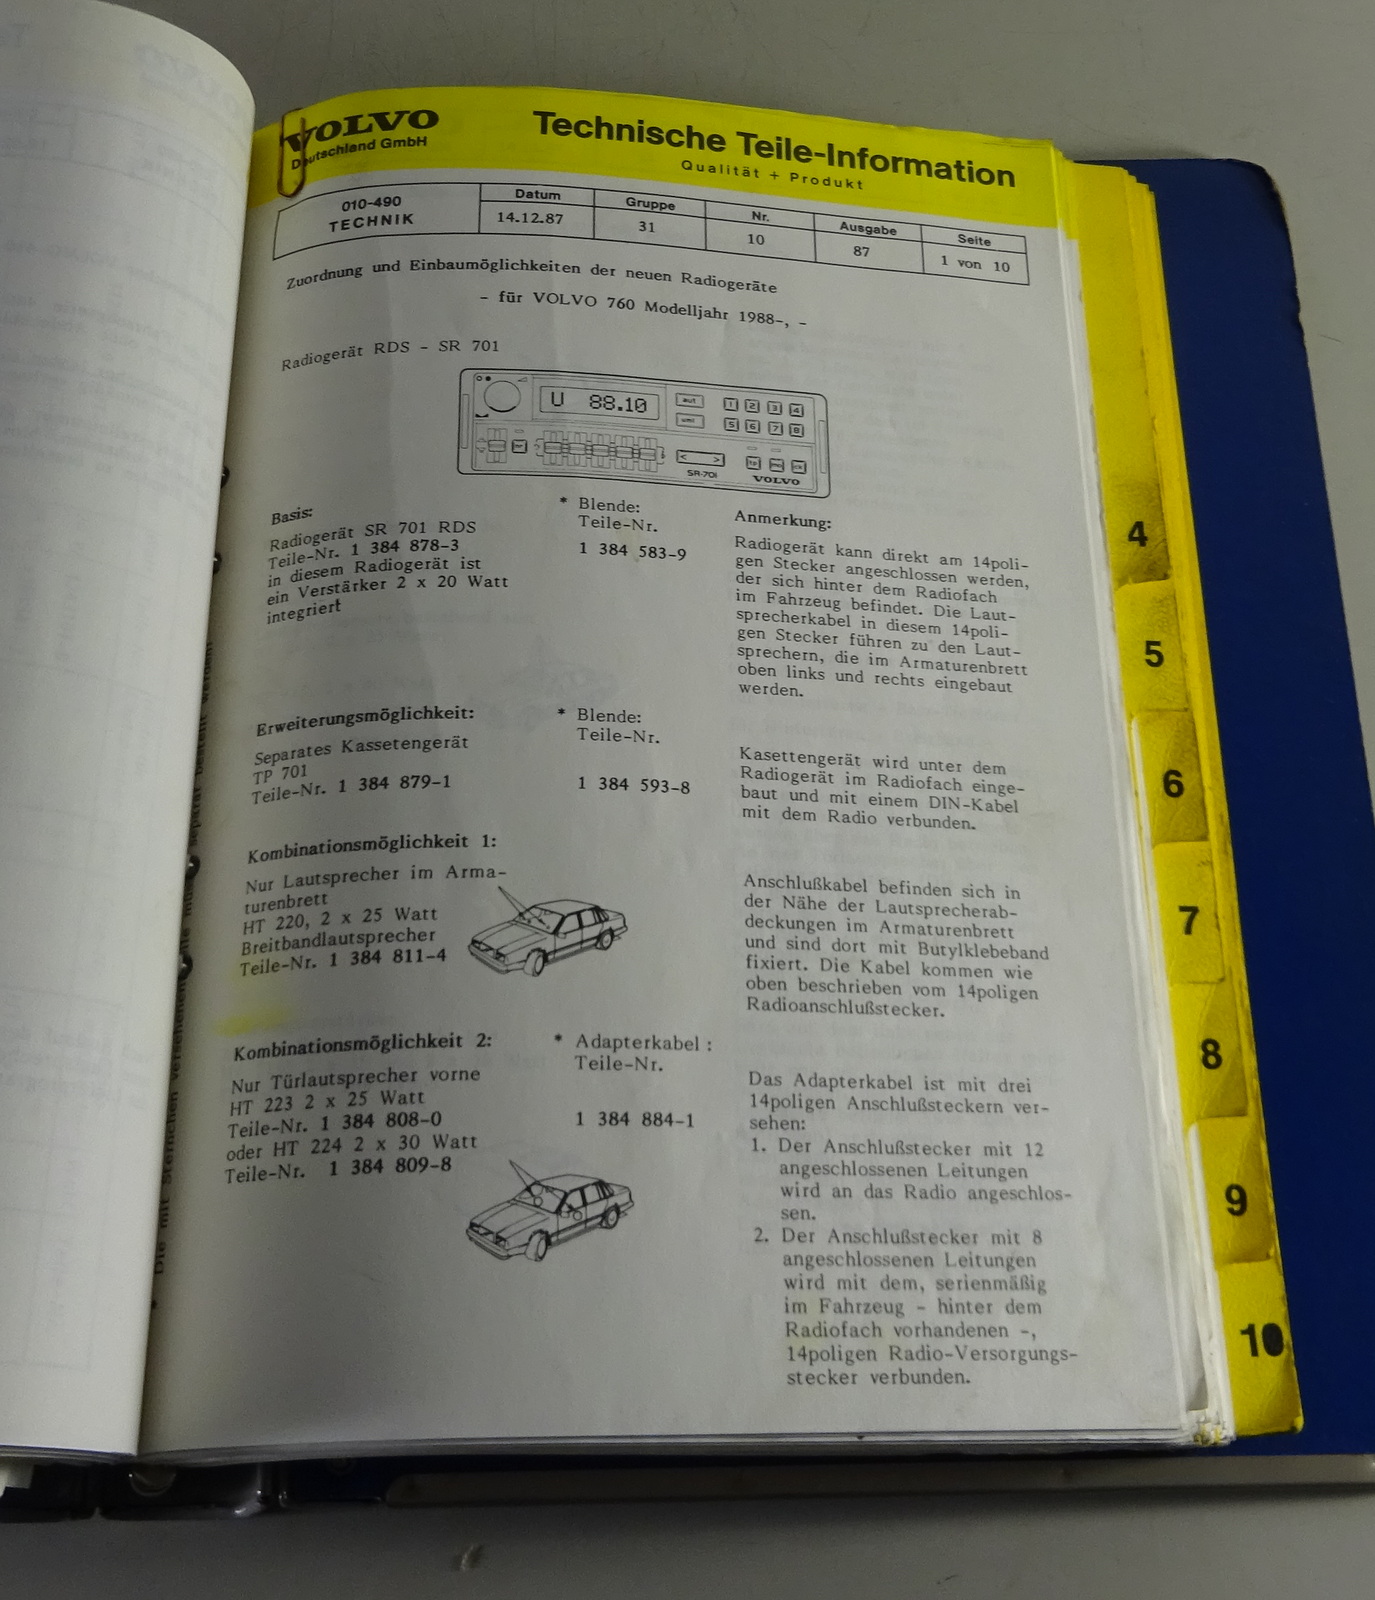 VOLVO
Deutschland GmbH
Technische Teile-Information
Qualität + Produkt
010-490
TECHNIK
Datum
14.12.87
Gruppe
31
Nr.
10
Ausgabe
87
Seite
1 von 10
Zuordnung und Einbaumöglichkeiten der neuen Radiogeräte
- für VOLVO 760 Modelljahr 1988-, -
Radiogerät RDS - SR 701
U 88.10
1 2 3 4
5 6 7 8
< >
SR-701
VOLVO
Basis:
Radiogerät SR 701 RDS
Teile-Nr. 1 384 878-3
in diesem Radiogerät ist
ein Verstärker 2 x 20 Watt
integriert
* Blende:
Teile-Nr.
1 384 583-9
Anmerkung:
Radiogerät kann direkt am 14poli-
gen Stecker angeschlossen werden,
der sich hinter dem Radiofach
im Fahrzeug befindet. Die Laut-
sprecherkabel in diesem 14poli-
gen Stecker führen zu den Laut-
sprechern, die im Armaturenbrett
oben links und rechts eingebaut
werden.
Erweiterungsmöglichkeit:
Separates Kassetengerät
TP 701
Teile-Nr. 1 384 879-1
* Blende:
Teile-Nr.
1 384 593-8
Kasettengerät wird unter dem
Radiogerät im Radiofach einge-
baut und mit einem DIN-Kabel
mit dem Radio verbunden.
Kombinationsmöglichkeit 1:
Nur Lautsprecher im Arma-
turenbrett
HT 220, 2 x 25 Watt
Breitbandlautsprecher
Teile-Nr. 1 384 811-4
Anschlußkabel befinden sich in
der Nähe der Lautsprecherab-
deckungen im Armaturenbrett
und sind dort mit Butylklebeband
fixiert. Die Kabel kommen wie
oben beschrieben vom 14poligen
Radioanschlußstecker.
Kombinationsmöglichkeit 2:
Nur Türlautsprecher vorne
HT 223 2 x 25 Watt
Teile-Nr. 1 384 808-0
oder HT 224 2 x 30 Watt
Teile-Nr. 1 384 809-8
* Adapterkabel :
Teile-Nr.
1 384 884-1
Das Adapterkabel ist mit drei
14poligen Anschlußsteckern ver-
sehen:
1. Der Anschlußstecker mit 12
angeschlossenen Leitungen
wird an das Radio angeschlos-
sen.
2. Der Anschlußstecker mit 8
angeschlossenen Leitungen
wird mit dem, serienmäßig
im Fahrzeug - hinter dem
Radiofach vorhandenen -,
14poligen Radio-Versorgungs-
stecker verbunden.
* Die mit Sternchen versehenen
separat bestellt werden!
4
5
6
7
8
9
10